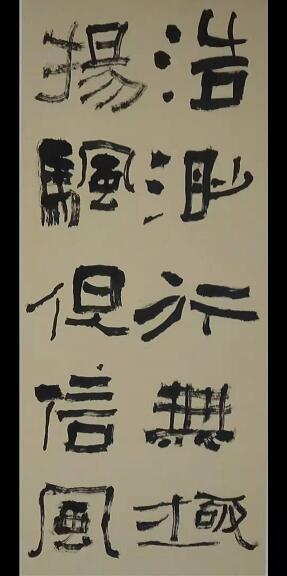 浩渺行無極
揚颿但信風